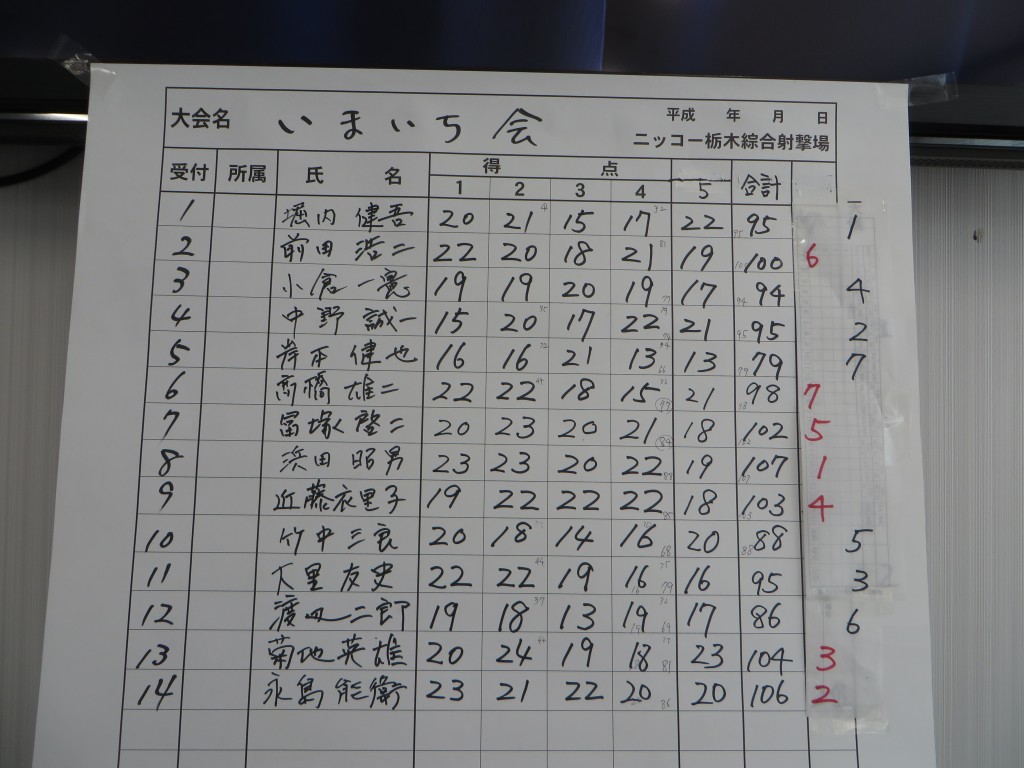 大会名 いまいち会 平成 年 月 日
ニッコー栃木綜合射撃場
受付 所属 氏 名 得 点 合計
1 2 3 4 5
1 堀内 健吾 20 21 15 17 22 95 1
2 前田 浩二 22 20 18 21 19 100 6
3 小倉 一寛 19 19 20 19 17 94 4
4 中野 誠一 15 20 17 22 21 95 2
5 岸本 健也 16 16 21 13 13 79 7
6 高橋 雄二 22 22 18 15 21 98 7
7 冨塚 啓二 20 23 20 21 18 102 5
8 浜田 昭男 23 23 20 22 19 107 1
9 近藤衣里子 19 22 22 22 18 103 4
10 竹中三良 20 18 14 16 20 88 5
11 大里 友史 22 22 19 16 16 95 3
12 渡辺二郎 19 18 13 19 17 86 6
13 菊地英雄 20 24 19 18 23 104 3
14 永島能衛 23 21 22 20 20 106 2